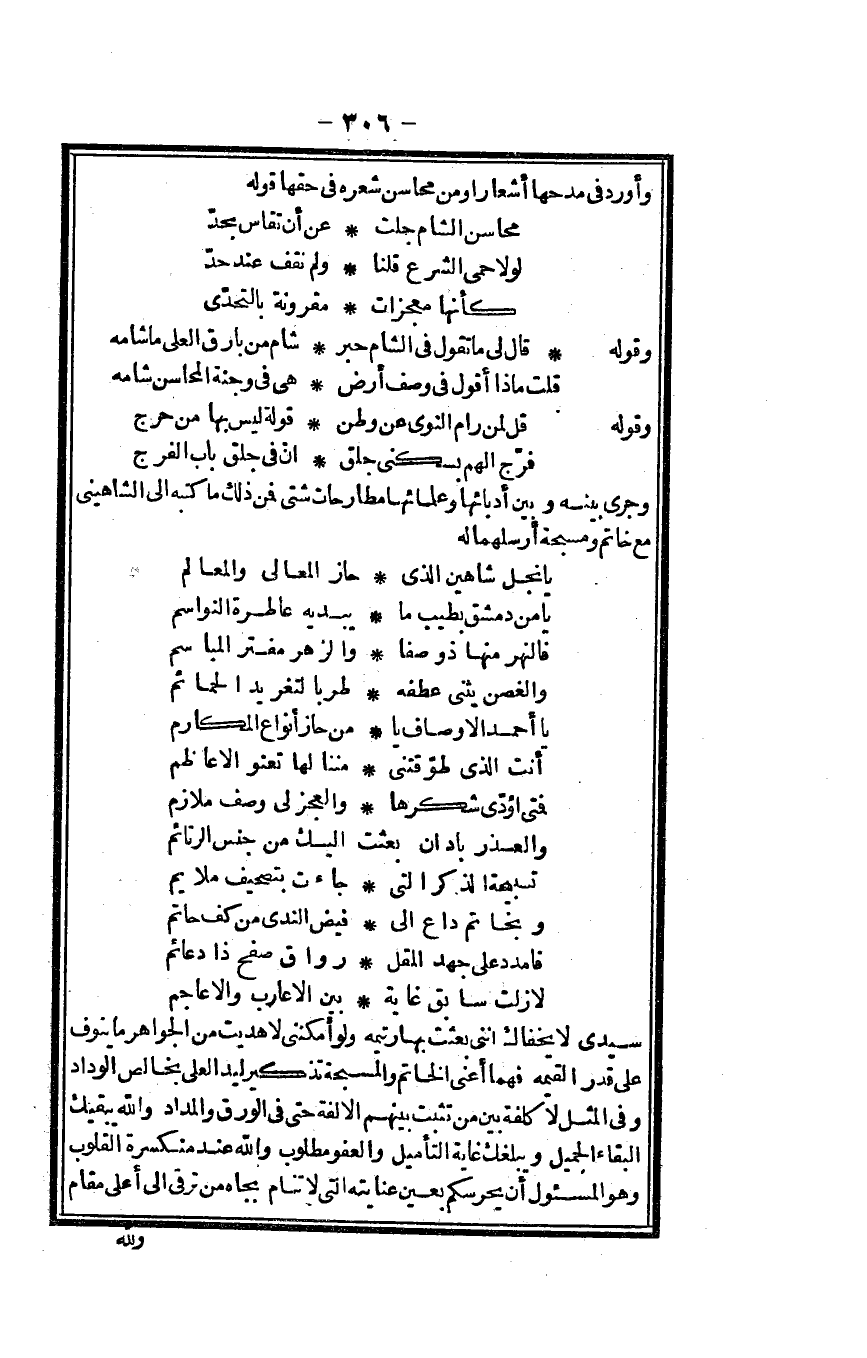 - ٣٠٦ -
وأورد فى مدحها أشعارا ومن محاسن شعره فى حقها قوله
محاسن الشام جلت * عن أن تقاس بحدّ
لولا حمى الشرع قلنا * ولم نقف عند حدّ
كأنها معجزات * مقرونة بالتحدّى
وقوله * قال لى ما تقول فى الشام حبر * شام من بارق العلى ما شامه
قلت ماذا أقول فى وصف أرض * هى فى وجنة المحاسن شامه
وقوله قل لمن رام النوى عن وطن * قولة ليس بها من حرج
فرّج الهم بسكنى جلق * انّ فى جلق باب الفرج
وجرى بينه وبين أدبائها وعلمائها مطارحات شتى فمن ذلك ما كتبه الى الشاهينى
مع خاتم ومسبحة أرسلهما له
يا نجل شاهين الذى * حاز المعالى والمعالم
يا من دمشق بطيب ما * يبديه عاطرة النواسم
فالنهر منها ذو صفا * والزهر مفتر المباسم
والغصن يثنى عطفه * طربا لتغريد الحمائم
يا أحمد الاوصاف يا * من حاز أنواع المكارم
أنت الذى طوّقتنى * مننا لها تعنو الاعاظم
فمتى اؤدّى شكرها * والعجز لى وصف ملازم
والعذر باد ان بعثت اليك من جنس الرتائم
تسبيحة الذكر التى * جاءت بتصحيف ملايم
وبخاتم داع الى * فيض الندى من كف حاتم
فامدد على جهد المقل * رواق صفح ذا دعائم
لازلت سابق غاية * بين الاعارب والاعاجم
سيدى لا يخفاك اننى بعثت بها رتيمه ولو أمكننى لاهديت من الجواهر ما ينوف
على قدر القيمه فهما أعنى الخاتم والمسبحة تذكير ليد العلى بخالص الوداد
وفى المثل لا كلفة بين من تثبت بينهم الالفة حتى فى الورق والمداد والله يبقيك
البقاء الجميل ويبلغك غاية التأميل والعفو مطلوب والله عند منكسرة القلوب
وهو المسئول أن يحرسكم بعين عنايته التى لا تنام بجاه من ترقى الى أعلى مقام
وله